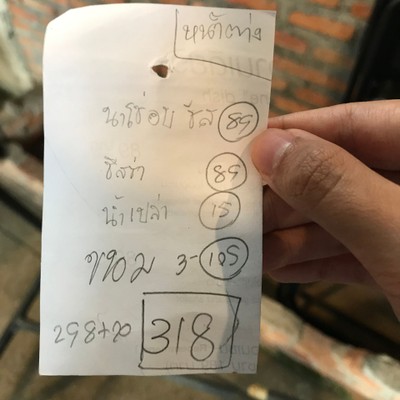 หน้าต่าง
นาโช่อบ ชีส 89
ชีสซ่า 89
น้ำเปล่า 15
ขนม 3- 105
298+20 318